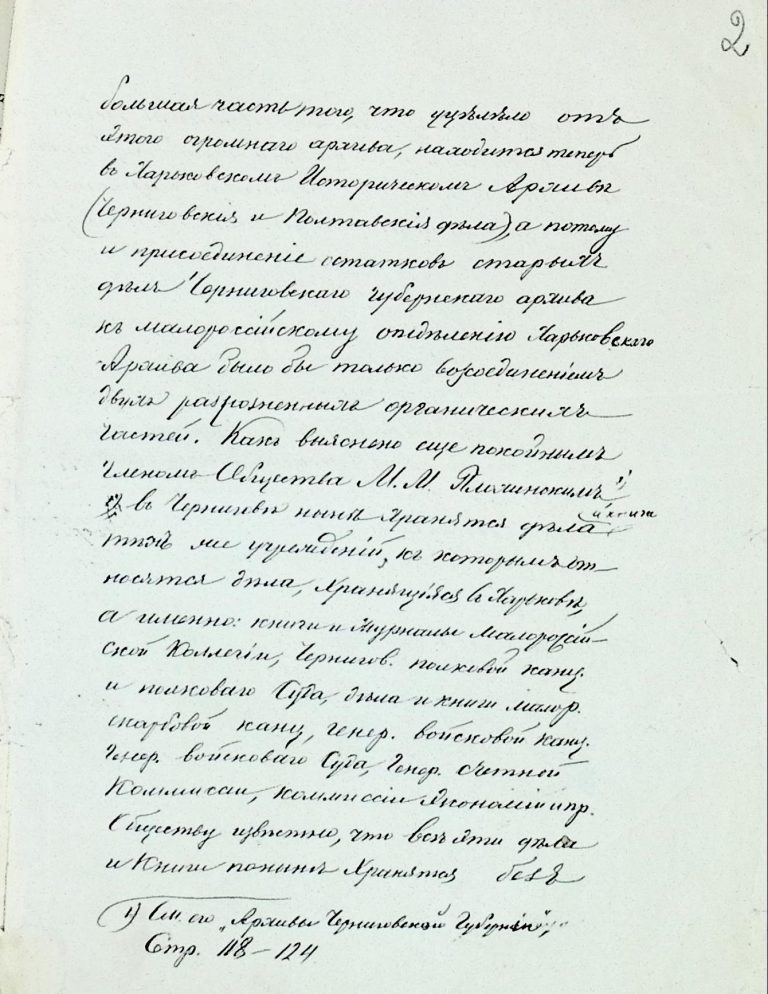 2
большая часть того, что уцѣлѣло отъ
этого огромнаго архива, находится теперь
въ Харьковскомъ Историческомъ Архивѣ
(Черниговскія и Полтавскія дѣла), а потому
и присоединеніе остатковъ старыхъ
дѣлъ Черниговскаго Губернскаго архива
къ малороссійскому отдѣленію Харьковскаго
Архива было бы только возсоединеніемъ
двухъ разрозненныхъ органическихъ
частей. Какъ выяснено еще покойнымъ
членомъ Общества М. М. Плохинскимъ 1)
въ Черниговѣ нынѣ хранятся дѣла и книги
тѣхъ же учрежденій, къ которымъ от-
носятся дѣла, хранящіяся въ Харьковѣ,
а именно: книги и журналы Малороссій-
ской Коллегіи, Чернигов. полковой канц.
и полковаго Суда, дѣла и книги малор.
скарбовой канц., генер. войсковой канц.
Генер. войсковаго Суда, Генер. счетной
Коммиссіи, коммиссіи экономіи и пр.
Обществу извѣстно, что всѣ эти дѣла
и книги понынѣ хранятся безъ
1) См. его „Архивы Черниговской Губерніи",
Стр. 118-124